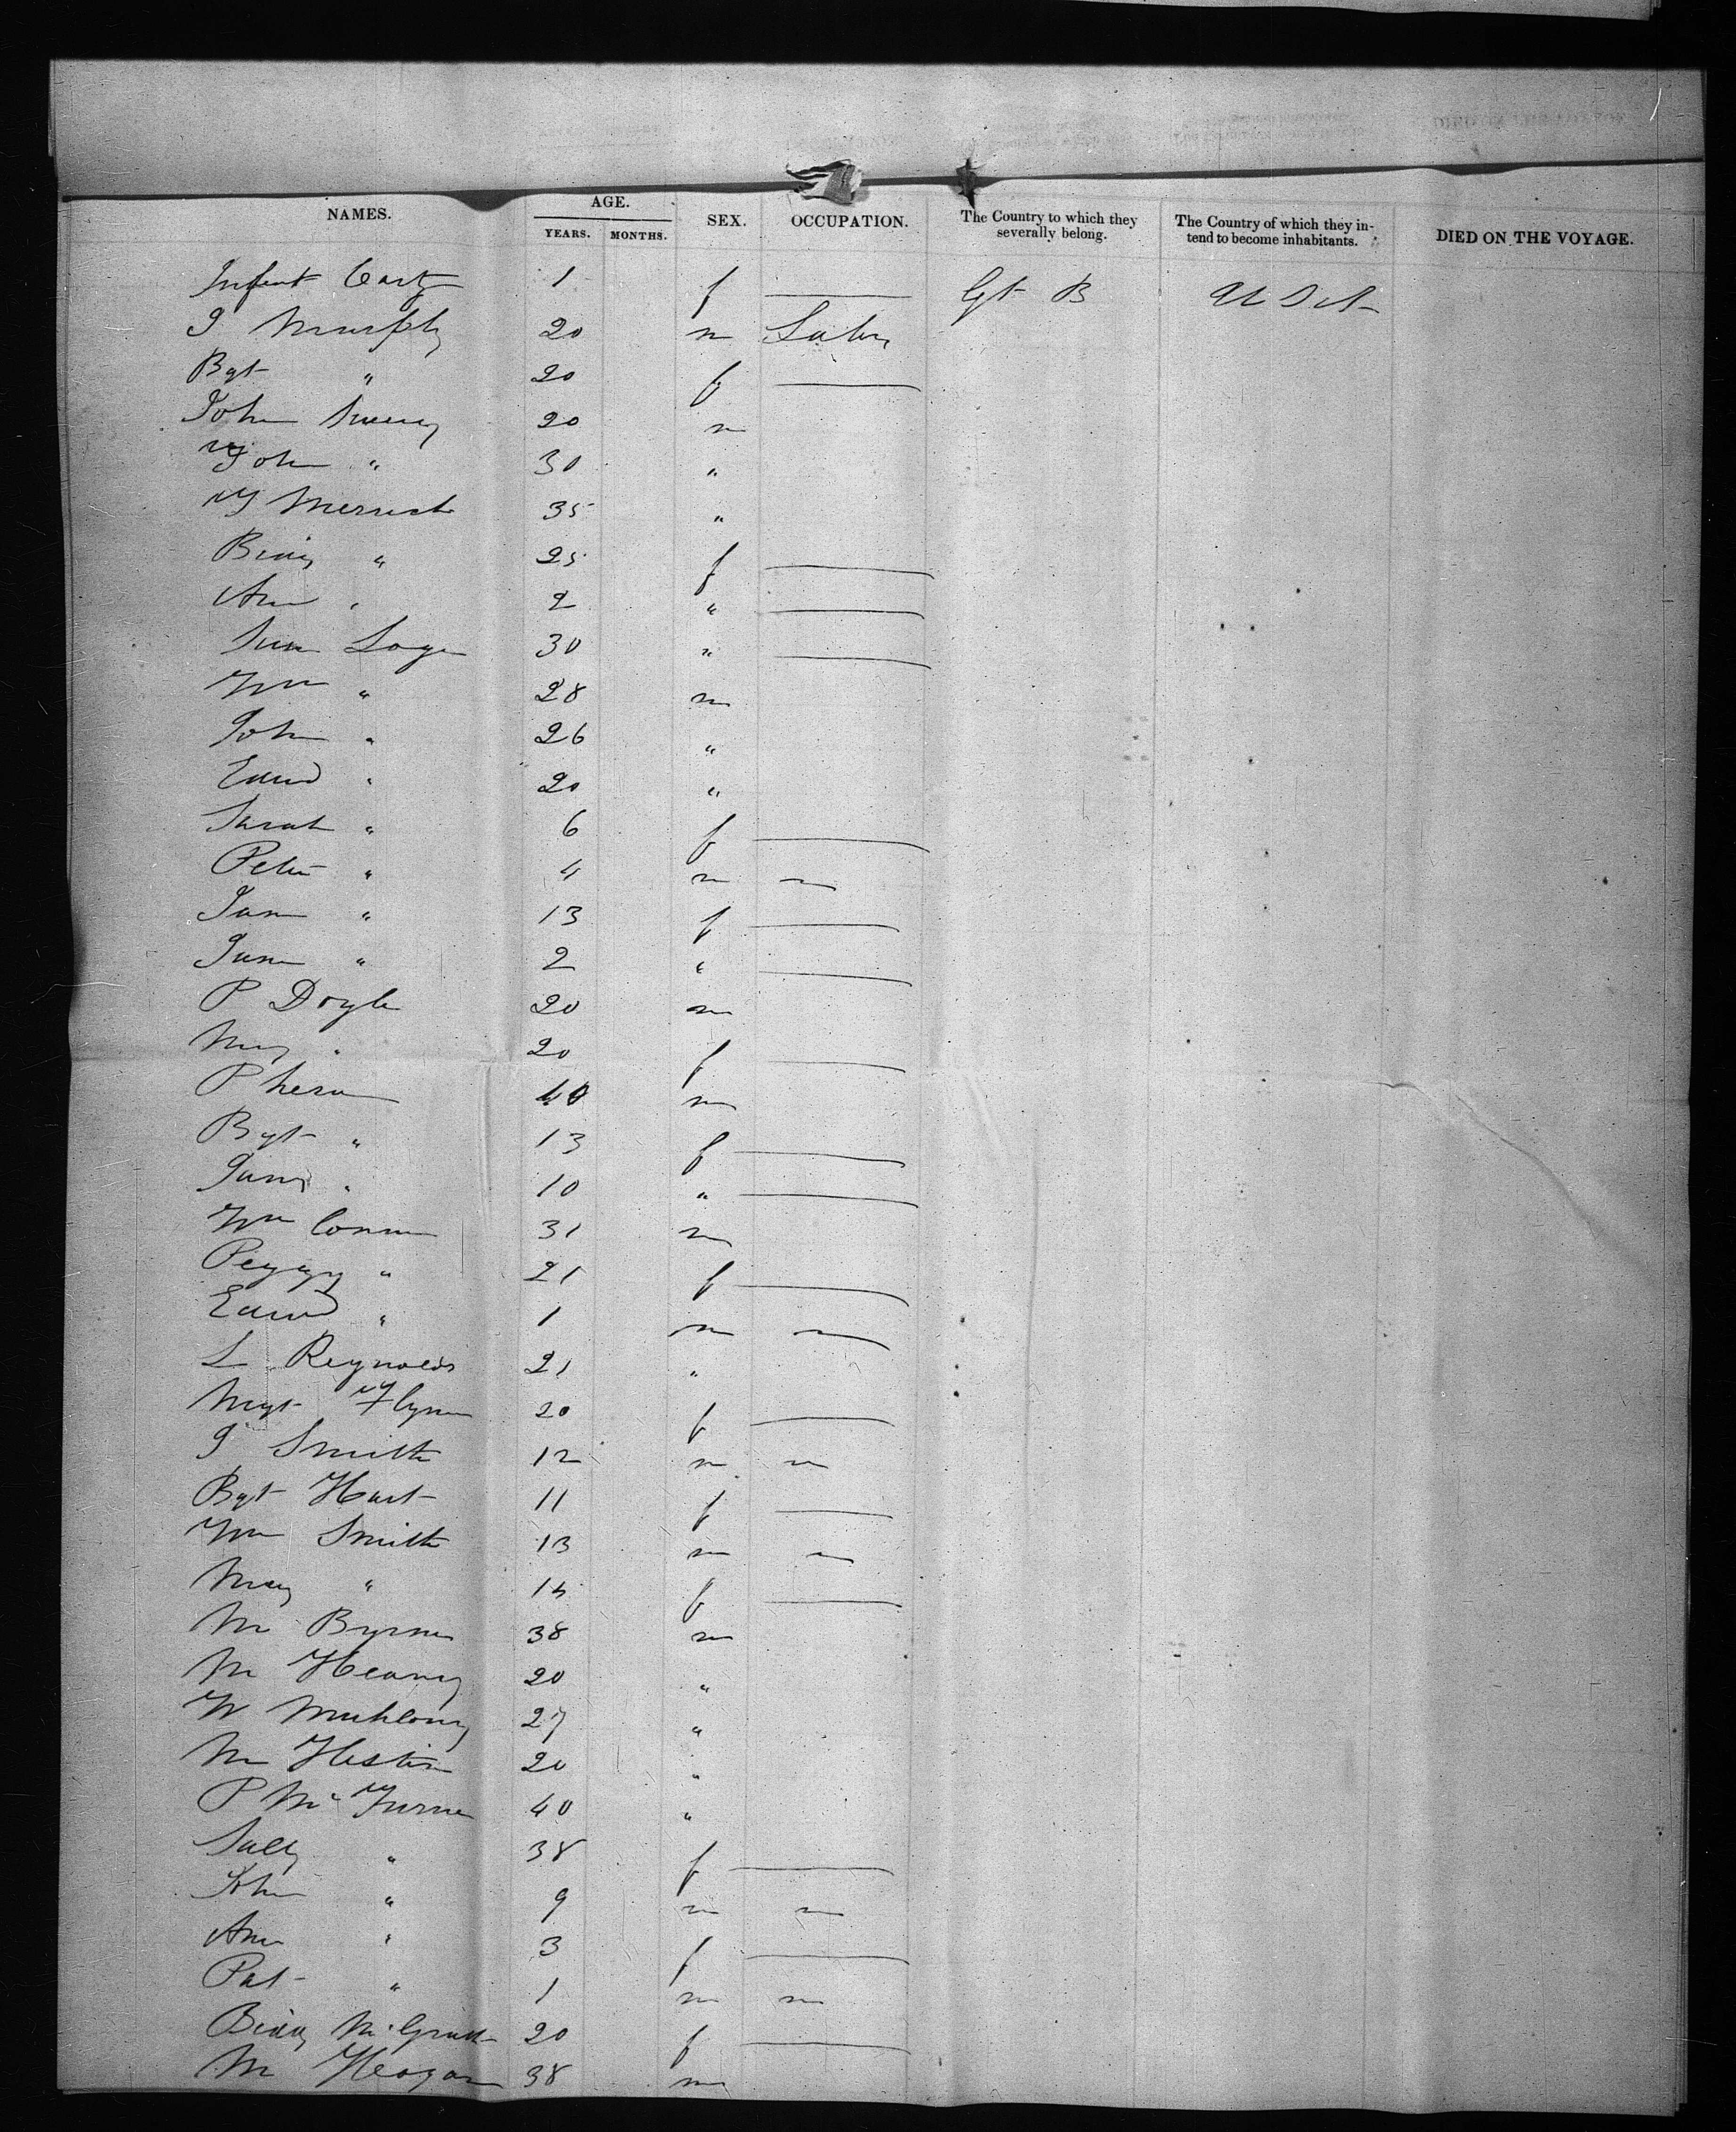 NAMES. AGE. YEARS. MONTHS. SEX. OCCUPATION. The Country to which they severally belong. The Country of which they intend to become inhabitants. DIED ON THE VOYAGE.
Infant Carty 1 f Gt B U S A
J Murphy 20 m Labr
Bgt " 20 f
John Sweeny 20 m
John " 30 "
Merrick 35 "
Biddy " 25 f
Ann " 2 "
30 "
Wm " 28 m
John " 26 "
Edwd " 20 "
Sarah " 6 f
Peter " 4 m
Jane " 13 f
Jane " 2 "
P Doyle 20 m
Mary " 20 f
P 40 m
Bgt " 13 f
" 10 "
Wm Connor 31 m
Peggy " 21 f
Edwd " 1 m
L Reynolds 21 "
Mgt Flynn 20 f
J Smith 12 m
Bgt Hart 11 f
Wm Smith 13 m
Mary " 14 f
M Byrne 38 m
M Heaney 20 "
W 27 "
M 20 "
P 40 "
Sally " 38 f
John " 9 m
Ann " 3 f
Pat " 1 m
Biddy McGrath 20 f
M Heagan 38 m